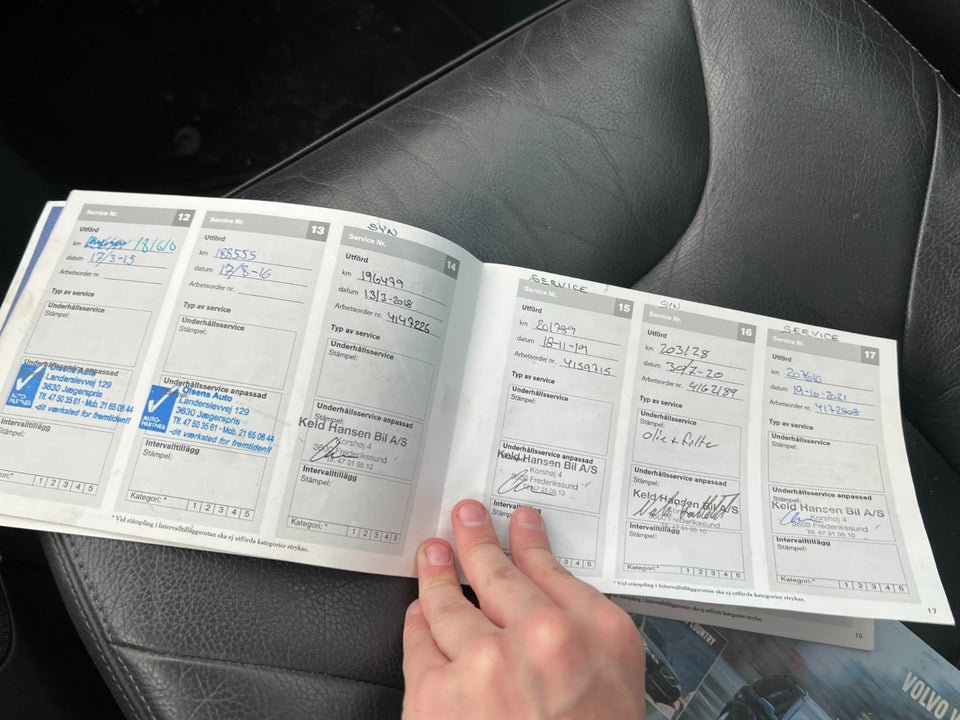 Service Nr. 12
Utförd
km 18/6/0
datum 17/3-15
Arbetsorder nr.
Typ av service
Underhållsservice
Stämpel:
Underhållsservice anpassad
Oleens Auto
Landerslevvej 129
3630 Jægerspris
Tlf. 47 50 35 61 - Mob. 21 65 08 44
-dit værksted for fremtiden!!
AUTO-
PARTNER
Intervalltillägg
Stämpel:
Kategori:* 1 2 3 4 5
Service Nr. 13
Utförd
km 188555
datum 17/8-16
Arbetsorder nr.
Typ av service
Underhållsservice
Stämpel:
Underhållsservice anpassad
Oleens Auto
Landerslevvej 129
3630 Jægerspris
Tlf. 47 50 35 61 - Mob. 21 65 08 44
-dit værksted for fremtiden!!
AUTO-
PARTNER
Intervalltillägg
Stämpel:
Kategori:* 1 2 3 4 5
SYN
Service Nr. 14
Utförd
km 196479
datum 13/3-2018
Arbetsorder nr. 4147226
Typ av service
Underhållsservice
Stämpel:
Underhållsservice anpassad
Stämpel:
Keld Hansen Bil A/S
Korshøj 4
3600 Frederikssund
Tlf. 47 31 05 10
Intervalltillägg
Stämpel:
Kategori:* 1 2 3 4 5
* Vid stämpling i Intervalltilläggsrutan ska ej utförda kategorier strykas.
SERVICE
Service Nr. 15
Utförd
km 201789
datum 18-11-19
Arbetsorder nr. 4159715
Typ av service
Underhållsservice
Stämpel:
Underhållsservice anpassad
Keld Hansen Bil A/S
Korshøj 4
3600 Frederikssund
Tlf. 47 31 05 10
Intervalltillägg
3 4 5
SYN
Service Nr. 16
Utförd
km 203128
datum 30/7-20
Arbetsorder nr. 4162189
Typ av service
Underhållsservice
Stämpel:
Olie + filter
Underhållsservice anpassad
Stämpel:
Keld Hansen Bil A/S
3600 Frederikssund
Intervalltillägg
Stämpel:
Kategori:* 1 2 3 4 5
SERVICE
Service Nr. 17
Utförd
km 207610
datum 19-10-2021
Arbetsorder nr. 4172808
Typ av service
Underhållsservice
Stämpel:
Underhållsservice anpassad
Stämpel:
Keld Hansen Bil A/S
Korshøj 4
3600 Frederikssund
Tlf. 47 31 05 10
Intervalltillägg
Stämpel:
Kategori:* 1 2 3 4 5
* Vid stämpling i Intervalltilläggsrutan ska ej utförda kategorier strykas.
17
19
COUNTRY
VOLVO